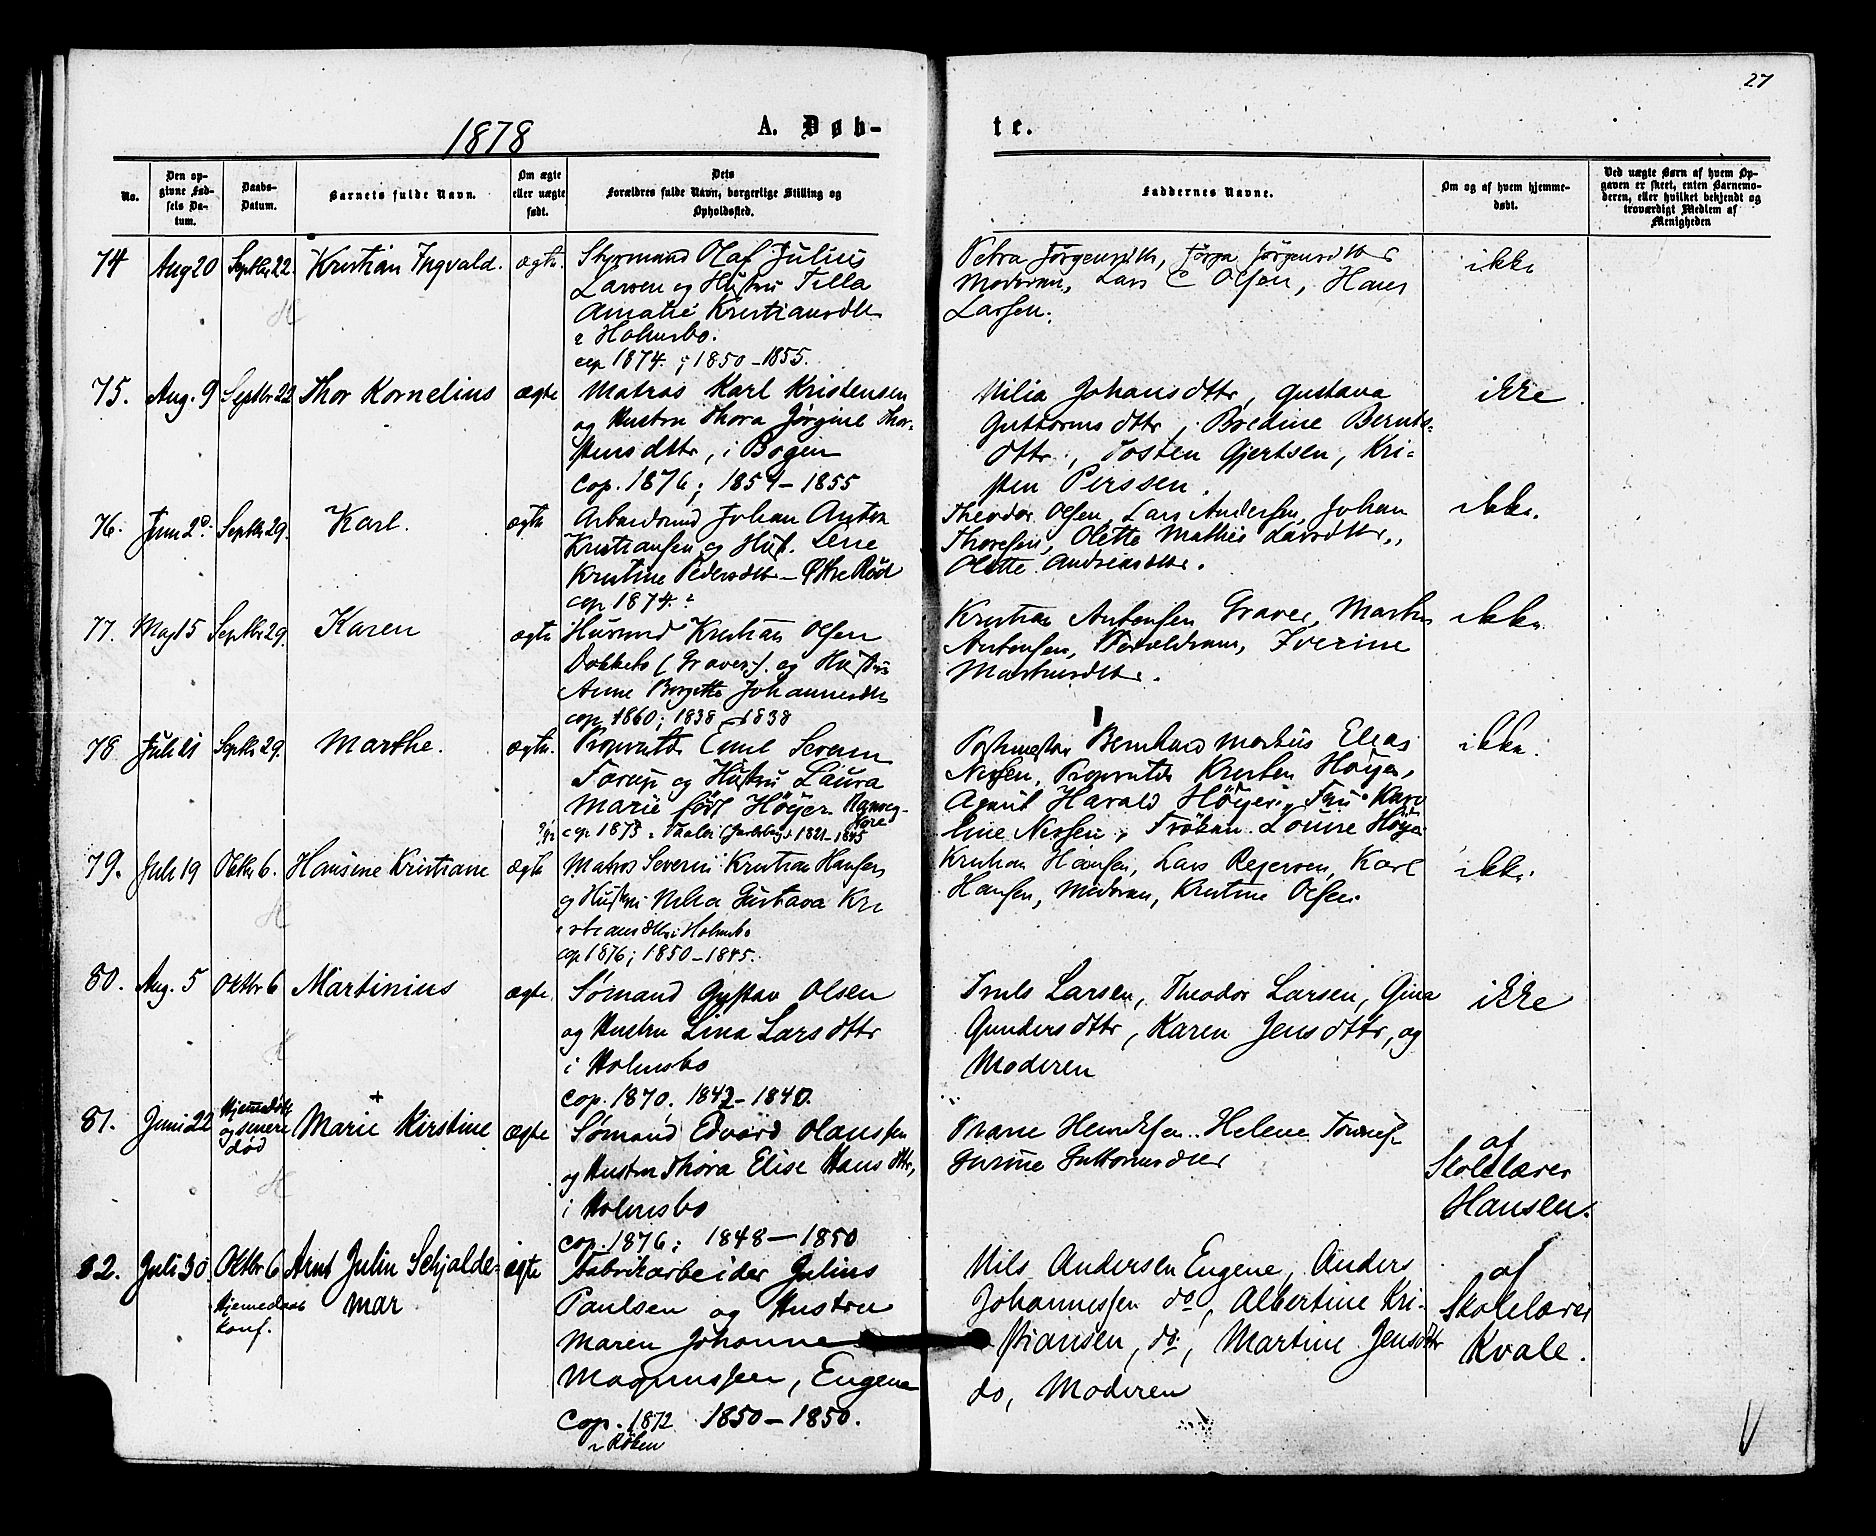 27
1878 A. Døb- te.
No.
Den op-
givne Fød-
sels Da-
tum.
Daabs-
Datum.
Barnets fulde Navn.
Om ægte
eller uægte
født.
Dets
Forældres fulde Navn, borgerlige Stilling og
Opholdssted.
Faddernes Navne.
Om og af hvem hjemme-
døbt.
Ved uægte Børn af hvem Op-
gaven er skeet, enten Barnemo-
deren, eller hvilket bekjendt og
troværdigt Medlem af
Menigheden
74 Aug 20 Septbr 22. Kristian Ingvald. ægte.
Styrmand Olaf Julius
Larsen og Hustru Tilla
Amalie Kristiansdtr
i Holmsbo.
cop 1874. ; 1850-1855.
Petra Jørgensdtr, Jørgensdtr
Moderen, Lars C Olsen, Hans
Larsen.
ikke
75. Aug. 9 Septbr 22 Thor Kornelius ægte
Matros Karl Kristensen
og Hustru Thora Jørgine Thor-
stensdttr, i Bogen
Cop. 1876; 1854-1855
Nilia Johansdttr, Gustava
Guttormsdttr, Bredine Bernts-
dttr., Tosten Gjertsen, Kri-
sten Perssen.
ikke
76. Juni 2d. Septbr 29. Karl. ægte
Arbeidsmd Johan Anton
Kristiansen og Hust. Lene
Kristine Pedersdtr - Øvre Rød
cop 1874.
Theodor Olsen, Lars Andersen, Johan
Thoresen, Olette Mathie Larsdtr.,
Olette Andreasdtr.
ikke.
77. Maj 15 Septbr 29. Karen ægte
Husmd Kristian Olsen
(Graver). og Hustru
Anne Birgitte Johannesdtr
cop 1860; 1838-1838
Kristian Antonsen Graver, Martin
Antonsen, Forældrene, Iverine
Martinsdtr.
ikke.
78. Juli 21 Septbr 29. Marthe. ægte.
Proprietær Emil Severin
Torup og Hustru Laura
Marie født Höyer
cop 1873 1821-1845
Postmester Bernhard Martius Elias
Nissen, Proprietær Kristen Höyer,
Agent Harald Höyer, Fru Karo
line Nissen, Fröken Louise Höyer
ikke.
79. Juli 19 Oktbr 6. Hansine Kristiane ægte
Matros Severin Kristian Hansen
og Hustru Nilia Gustava Kri
stiansdtr i Holmsbo
cop 1876; 1850-1845.
Kristian Hansen, Lars Rejersen, Karl
Hansen, Moderen, Kristine Olsen.
ikke.
80. Aug. 5 Oktbr 6 Martinius ægte.
Sømand Gustav Olsen
og Hustru Lina Larsdttr
i Holmsbo
Cop. 1870, 1842-1840.
Truls Larsen, Theodor Larsen, Gina
Gundersdttr, Karen Jensdttr, og
Moderen
ikke
81. Juni 22 Hjemmedøbt
og senere
død
Marie Kirstine ægte
Sømand Edvard Olaussen
og Hustru Thora Elise Hansdttr,
i Holmsbo
cop. 1876; 1848-1850
Marie Hendrksen. Helene
Guttormsdtr
af
Skolelærer
Hansen.
82. Juli 30. Oktbr 6
Hjemedaab
konf.
Arnt Julin Schjalde-
mar
ægte
Fabrikarbeider Julius
Paulsen og Hustru
Maren Johanne
Magnussen, Engene
Cop. 1872 1850-1850.
i Røken
Nils Andersen Engene, Anders
Johannessen do, Albertine Kri-
stiansen, do., Martine Jensdttr
do, Moderen
af
Skolelærer
Kvale.